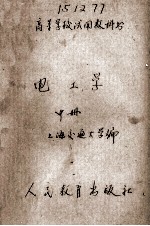 151277
高等学校试用教科书
电工学
中册
上海交通大学编
人民教育出版社